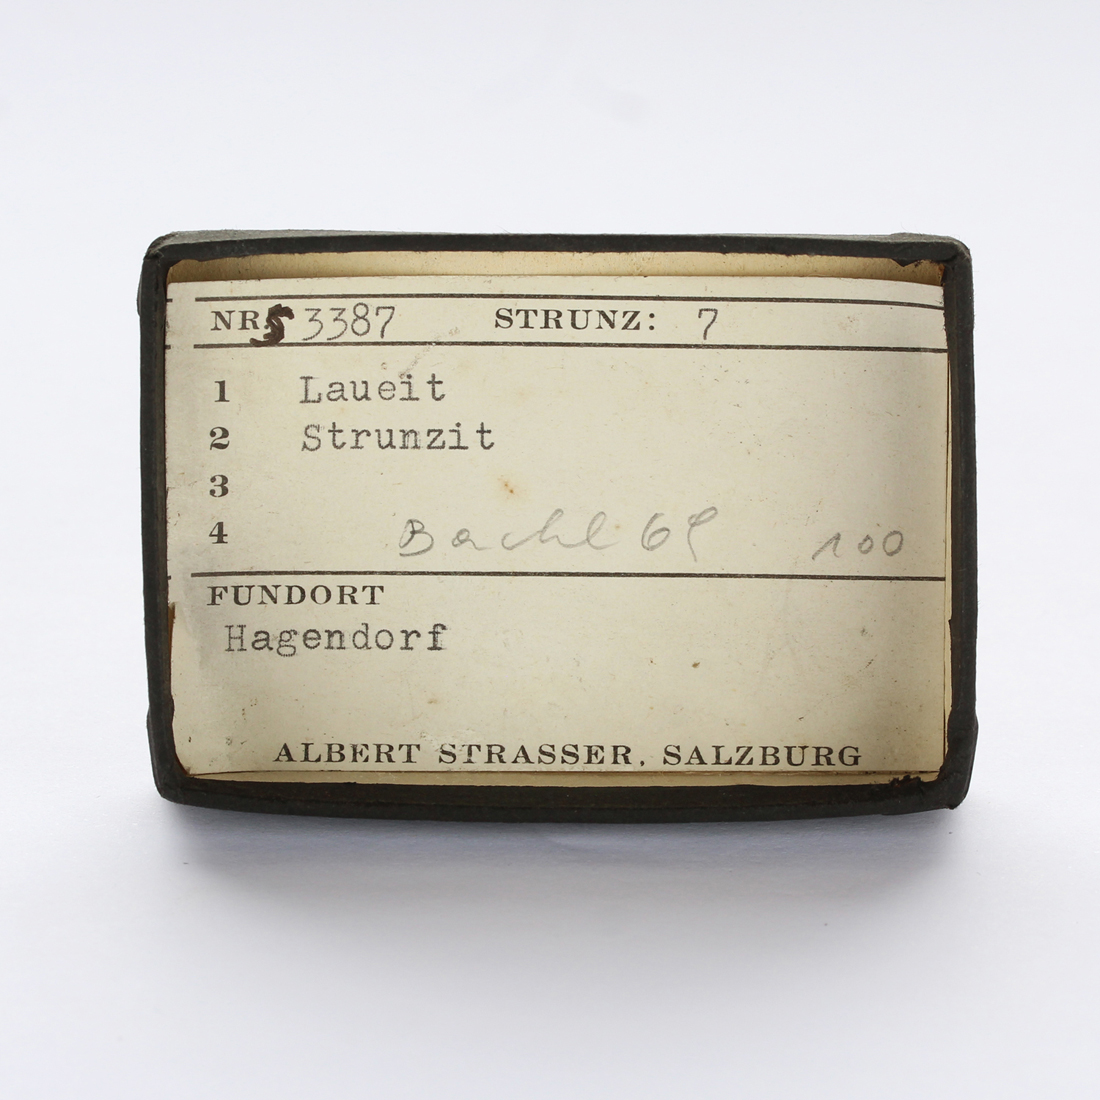 NR S 3387 STRUNZ: 7
1 Laueit
2 Strunzit
3
4 Bachl 69 100
FUNDORT
Hagendorf
ALBERT STRASSER, SALZBURG